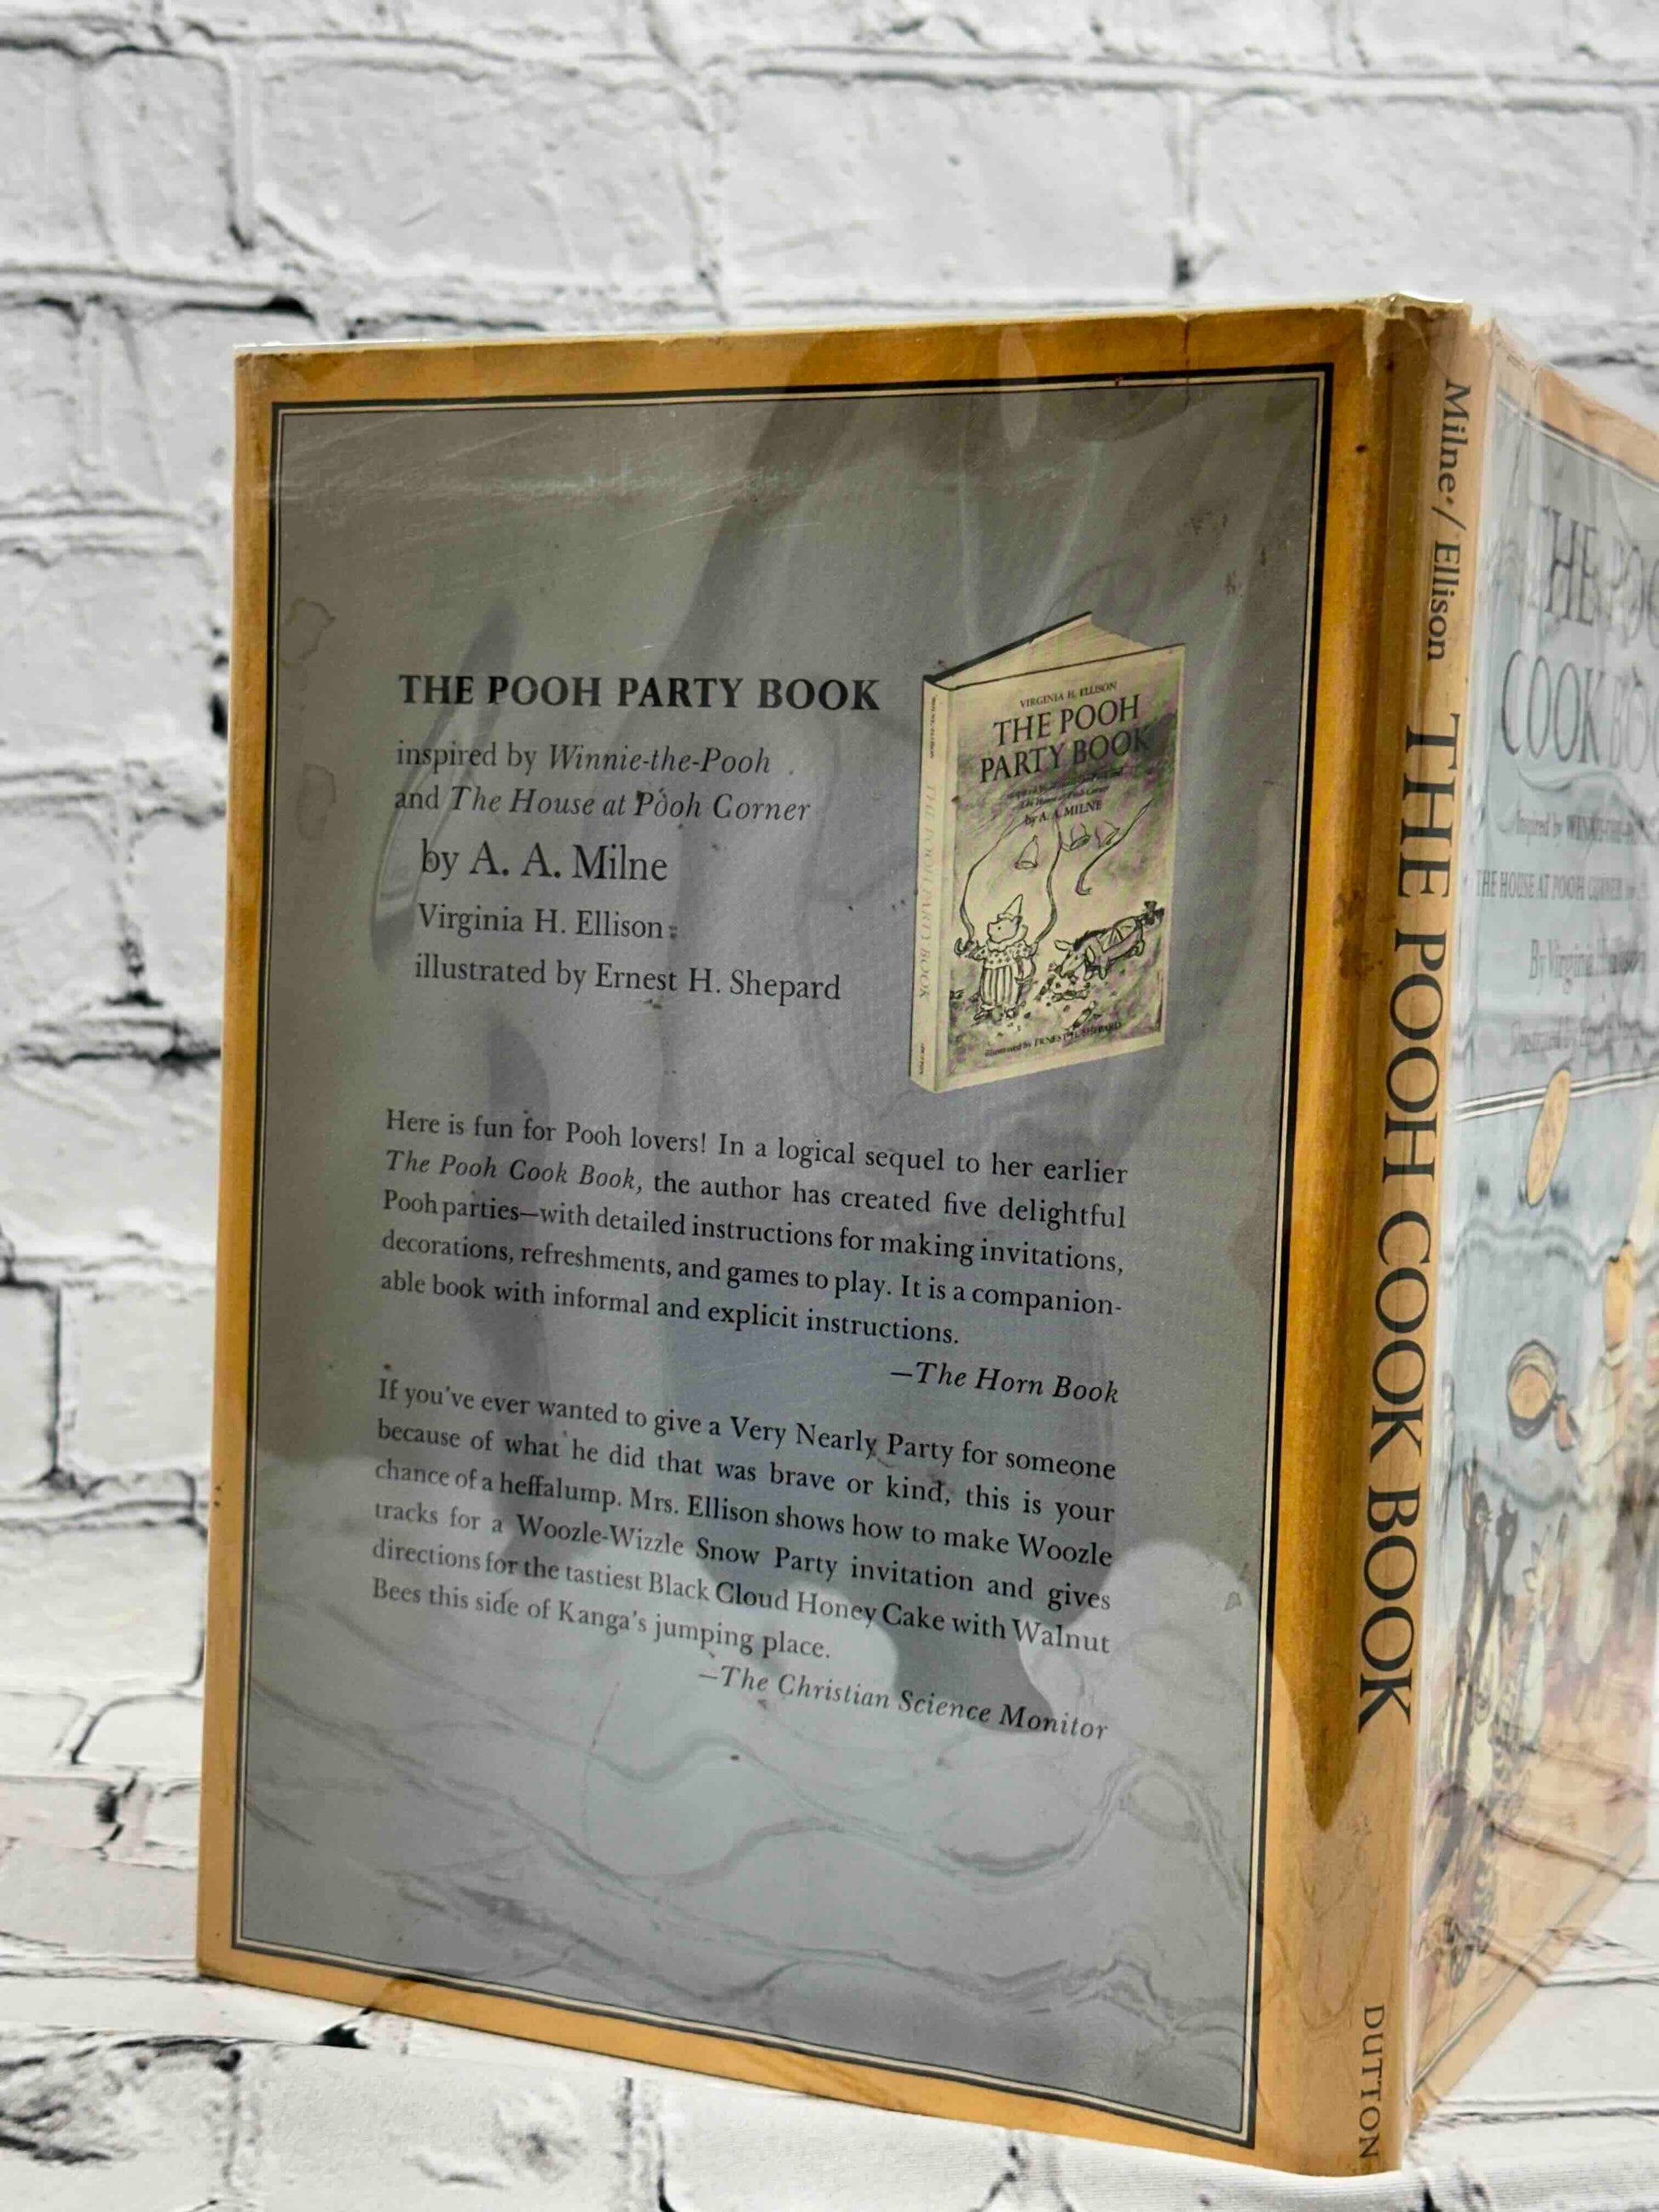 THE POOH PARTY BOOK
inspired by Winnie-the-Pooh
and The House at Pooh Corner
by A. A. Milne
Virginia H. Ellison
illustrated by Ernest H. Shepard
VIRGINIA H. ELLISON
THE POOH
PARTY BOOK
by A. A. MILNE
illustrated by ERNEST H. SHEPARD
THE POOH PARTY BOOK
Here is fun for Pooh lovers! In a logical sequel to her earlier
The Pooh Cook Book, the author has created five delightful
Pooh parties—with detailed instructions for making invitations,
decorations, refreshments, and games to play. It is a companion-
able book with informal and explicit instructions.
—The Horn Book
If you've ever wanted to give a Very Nearly Party for someone
because of what he did that was brave or kind, this is your
chance of a heffalump. Mrs. Ellison shows how to make Woozle
tracks for a Woozle-Wizzle Snow Party invitation and gives
directions for the tastiest Black Cloud Honey Cake with Walnut
Bees this side of Kanga's jumping place.
—The Christian Science Monitor
Milne / Ellison
THE POOH COOK BOOK
DUTTON
THE POO
COOK BO
Inspired by
THE HOUSE AT POOH CORNER
By Virginia